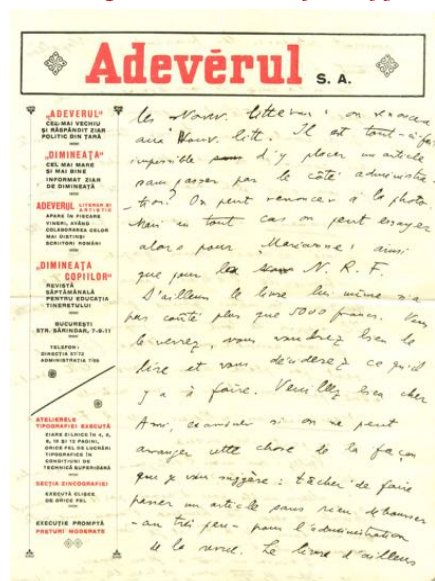 Adevĕrul S. A.
„ADEVERUL"
CEL MAI VECHIU
ȘI RĂSPÂNDIT ZIAR
POLITIC DIN ȚARĂ
„DIMINEAȚA"
CEL MAI MARE
ȘI MAI BINE
INFORMAT ZIAR
DE DIMINEAȚĂ
ADEVERUL LITERAR ȘI
ARTISTIC
APARE ÎN FIECARE
VINERI, AVÂND
COLABORAREA CELOR
MAI DISTINȘI
SCRIITORI ROMÂNI
„DIMINEAȚA
COPIILOR"
REVISTĂ
SĂPTĂMÂNALĂ
PENTRU EDUCAȚIA
TINERETULUI
BUCUREȘTI
STR. SĂRINDAR, 7-9-11
TELEFON:
DIRECȚIA
ADMINISTRAȚIA
ATELIERELE
TIPOGRAFIEI EXECUTĂ
ZIARE ZILNICE ÎN 4, 6,
8, 10 ȘI 12 PAGINI,
ORICE FEL DE LUCRĂRI
TIPOGRAFICE ÎN
CONDIȚIUNI DE
TECHNICĂ SUPERIOARĂ
SECȚIA ZINCOGRAFIEI
EXECUTĂ CLIȘEE
DE ORICE FEL
EXECUȚIE PROMPTĂ
PREȚURI MODERATE
les Nouv. litt on renoncera
aux Nouv. litt. Il est tout-à-fait
impossible d'y placer un article
sans passer par le côté administra-
-tion? On peut renoncer à la photo.
Mais en tout cas on peut essayer
alors pour "Marianne" ainsi
que pour la N. R. F.
D'ailleurs le livre lui même n'a
pas coûté plus que 5000 francs. Vous
le verrez, vous voudrez bien le
lire et vous déciderez ce qu'il
y a à faire. Veuillez bien cher
Ami, examiner si on ne peut
arranger cette chose de la façon
que je vous suggère: tâcher de faire
passer un article sans rien débourser
- ou très peu - pour l'administration
de la revue. Le livre d'ailleurs